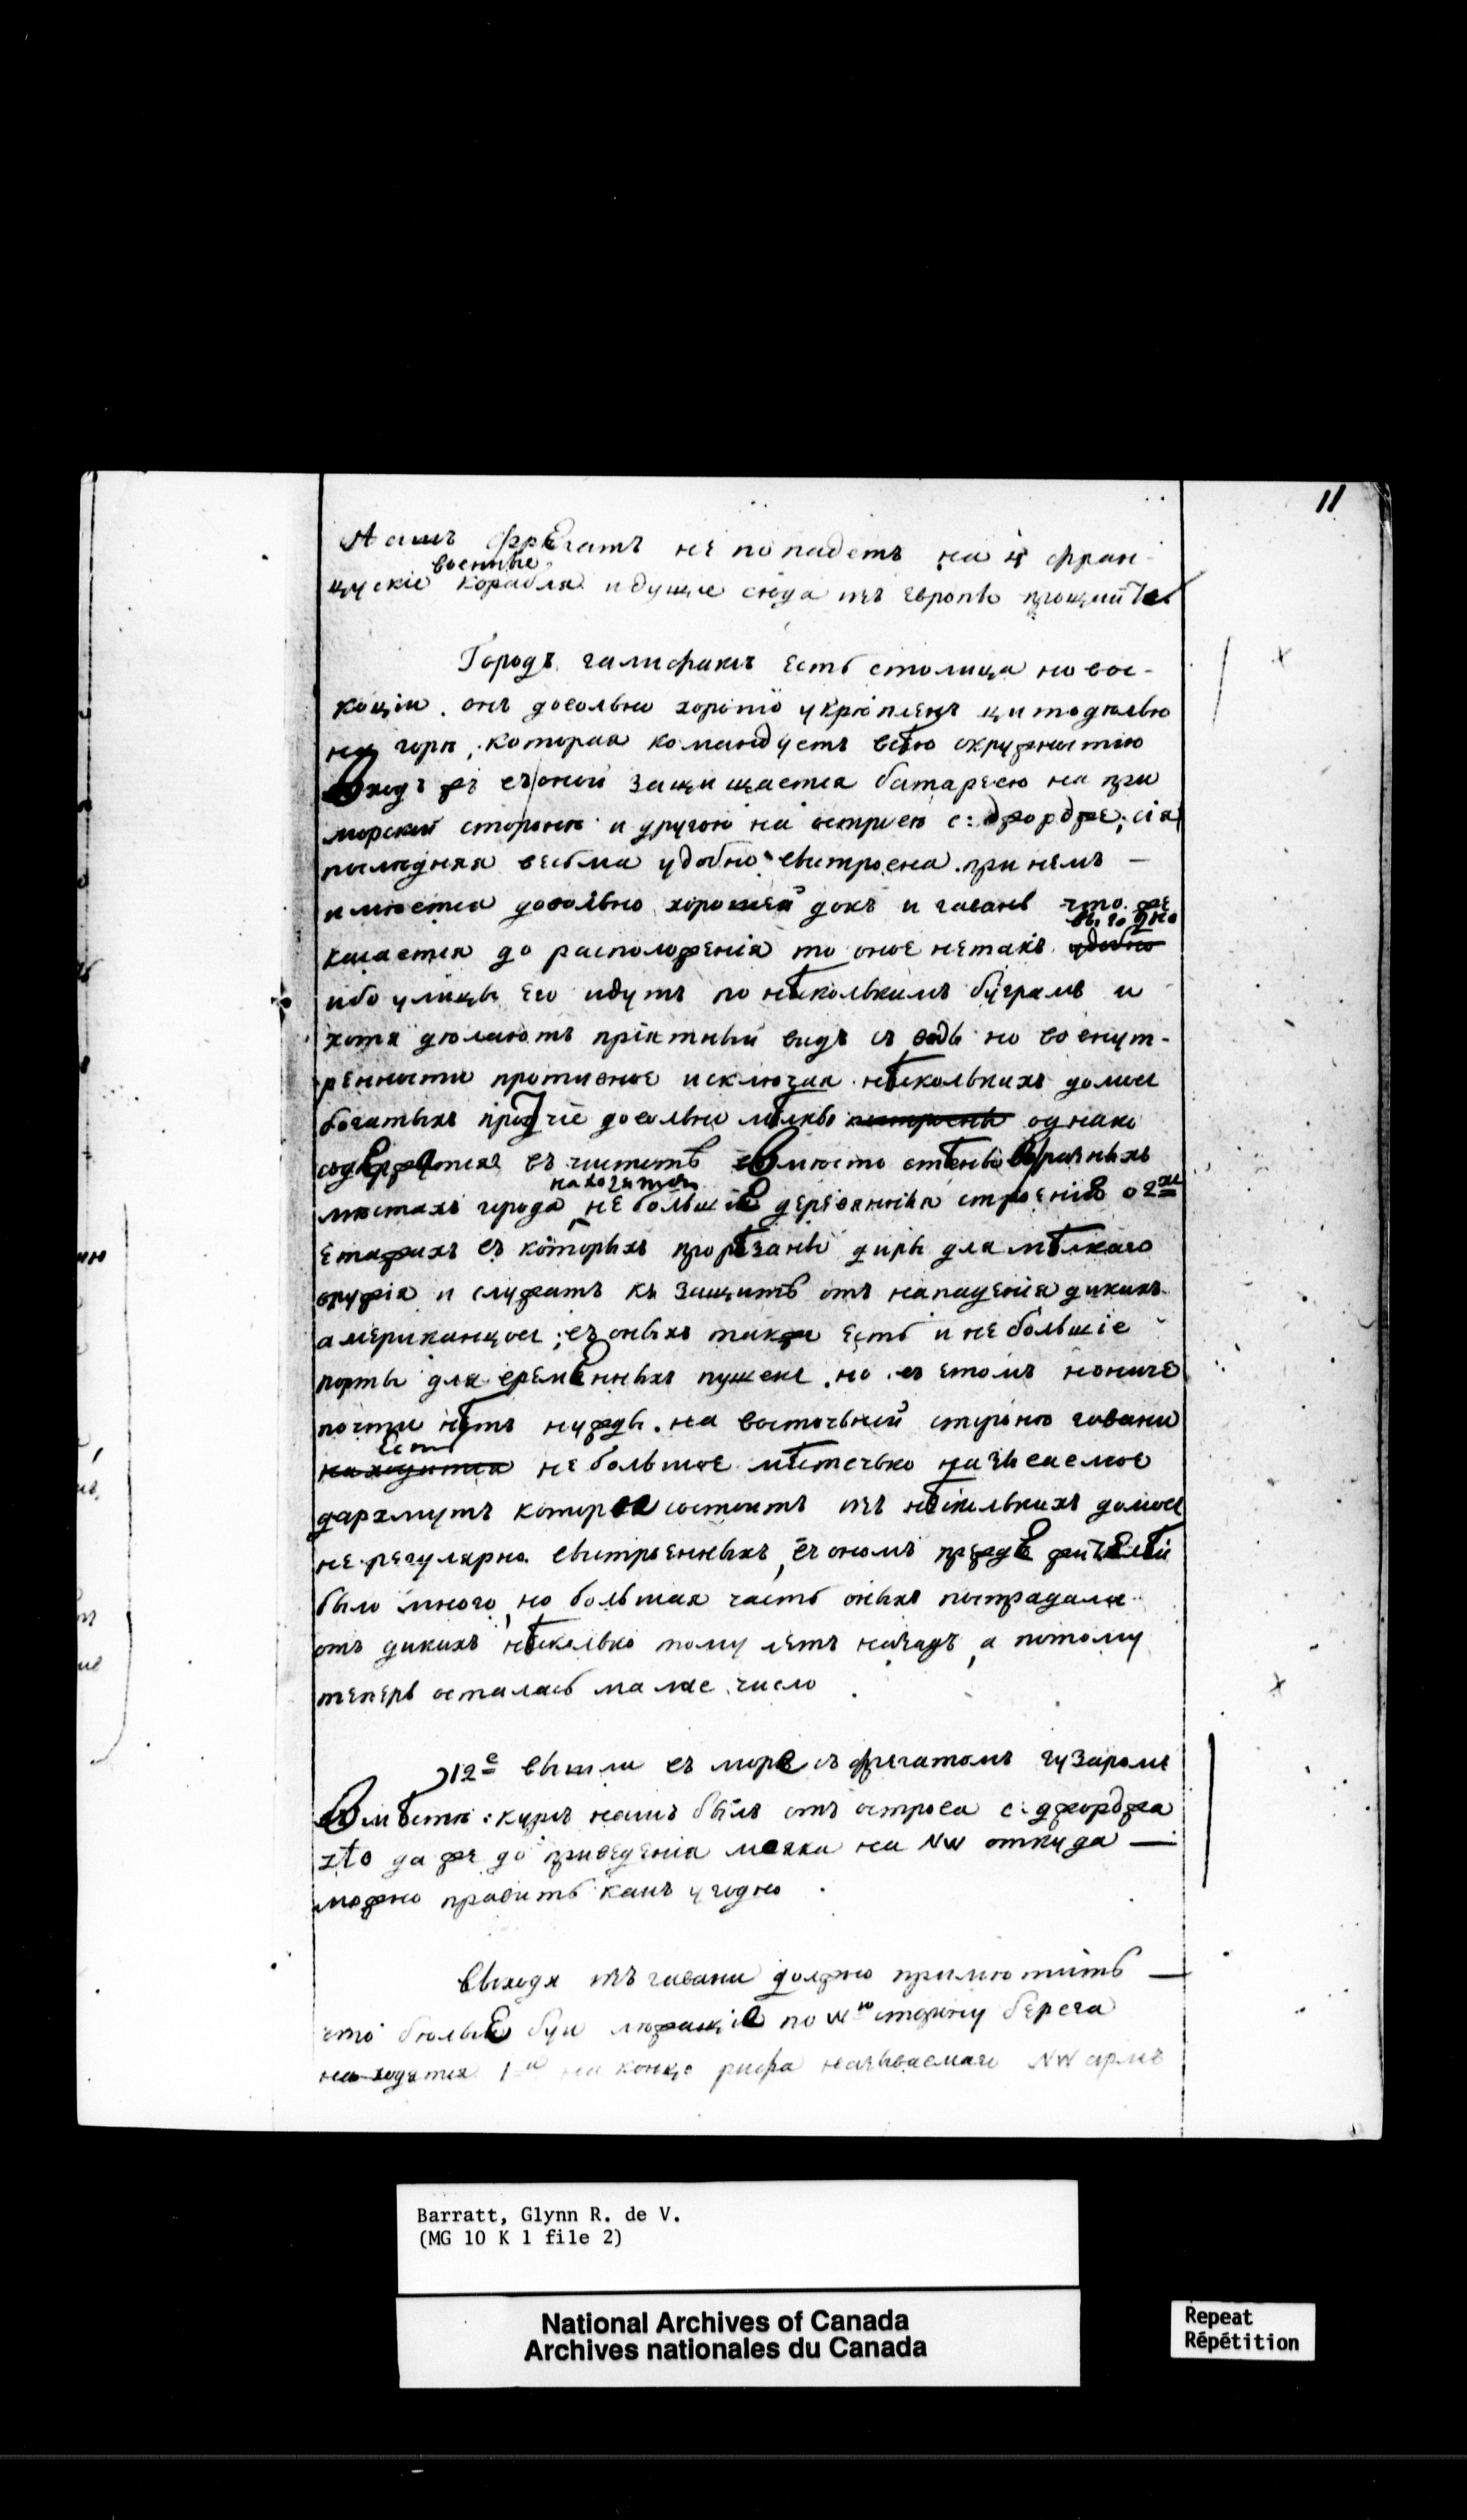 11
Нашъ фрегатъ не попадетъ на 4 фран-
цускіе военные корабля идущие сюда изъ европы
Городъ галифаксъ есть столица новос-
коціи. онъ довольно хорошо укрѣпленъ цитадѣлью
на горѣ, которая командуетъ всѣю окружностию
Входъ въ оной защищается батареею на при
морской сторонѣ и другою на островѣ с: джордже; сія
послѣдняя весьма удобно выстроена. при немъ —
имѣется довольно хорошей докъ и гавань что же
касается до расположенія то оное нетакъ удобно выгодно
ибо улицы его идутъ по нѣсколькимъ буграмъ и
хотя дѣлаютъ пріятный видъ съ воды но во внут-
ренности противное исключая нѣсколькихъ домов
богатыхъ протчіе довольны мѣлки построены однако
содержатся въ чистотѣ Вмѣсто стѣны въ разныхъ
мѣстахъ города находится не большіе деревянныя строеніе о 2хъ
етажахъ въ которыхъ прорѣзаны диры для мѣлкаго
оружія и служатъ къ защитѣ отъ нападенія дикихъ
американцов; въ оныхъ также есть и не большіе
порты для временныхъ пушекъ. но въ етомъ нониче
почти нѣтъ нужды. на восточьней сторонѣ гавани
находится есть не большое мѣстечько называемое
дархмутъ которое состоитъ изъ нѣскольких домов
не регулярно выстроенныхъ, въ ономъ прежде жителѣй
было много, но большая часть оныхъ пострадала
отъ дикихъ нѣсколько тому летъ назадъ, а потому
теперь осталась малое число.
12е вышли въ море съ фрегатомъ гузаромъ
Вмѣстѣ: курсъ нашъ былъ отъ острова с: джорджа
StO даже до приведенія маяка на NW откуда —
можно править какъ угодно.
Выходя изъ гавани должно примѣтить —
что бѣлые буи лежащіе по Wю сторону берега
находятся 1й на конце рифа называемаго NW армъ
Barratt, Glynn R. de V.
(MG 10 K 1 file 2)
National Archives of Canada
Archives nationales du Canada
Repeat
Répétition